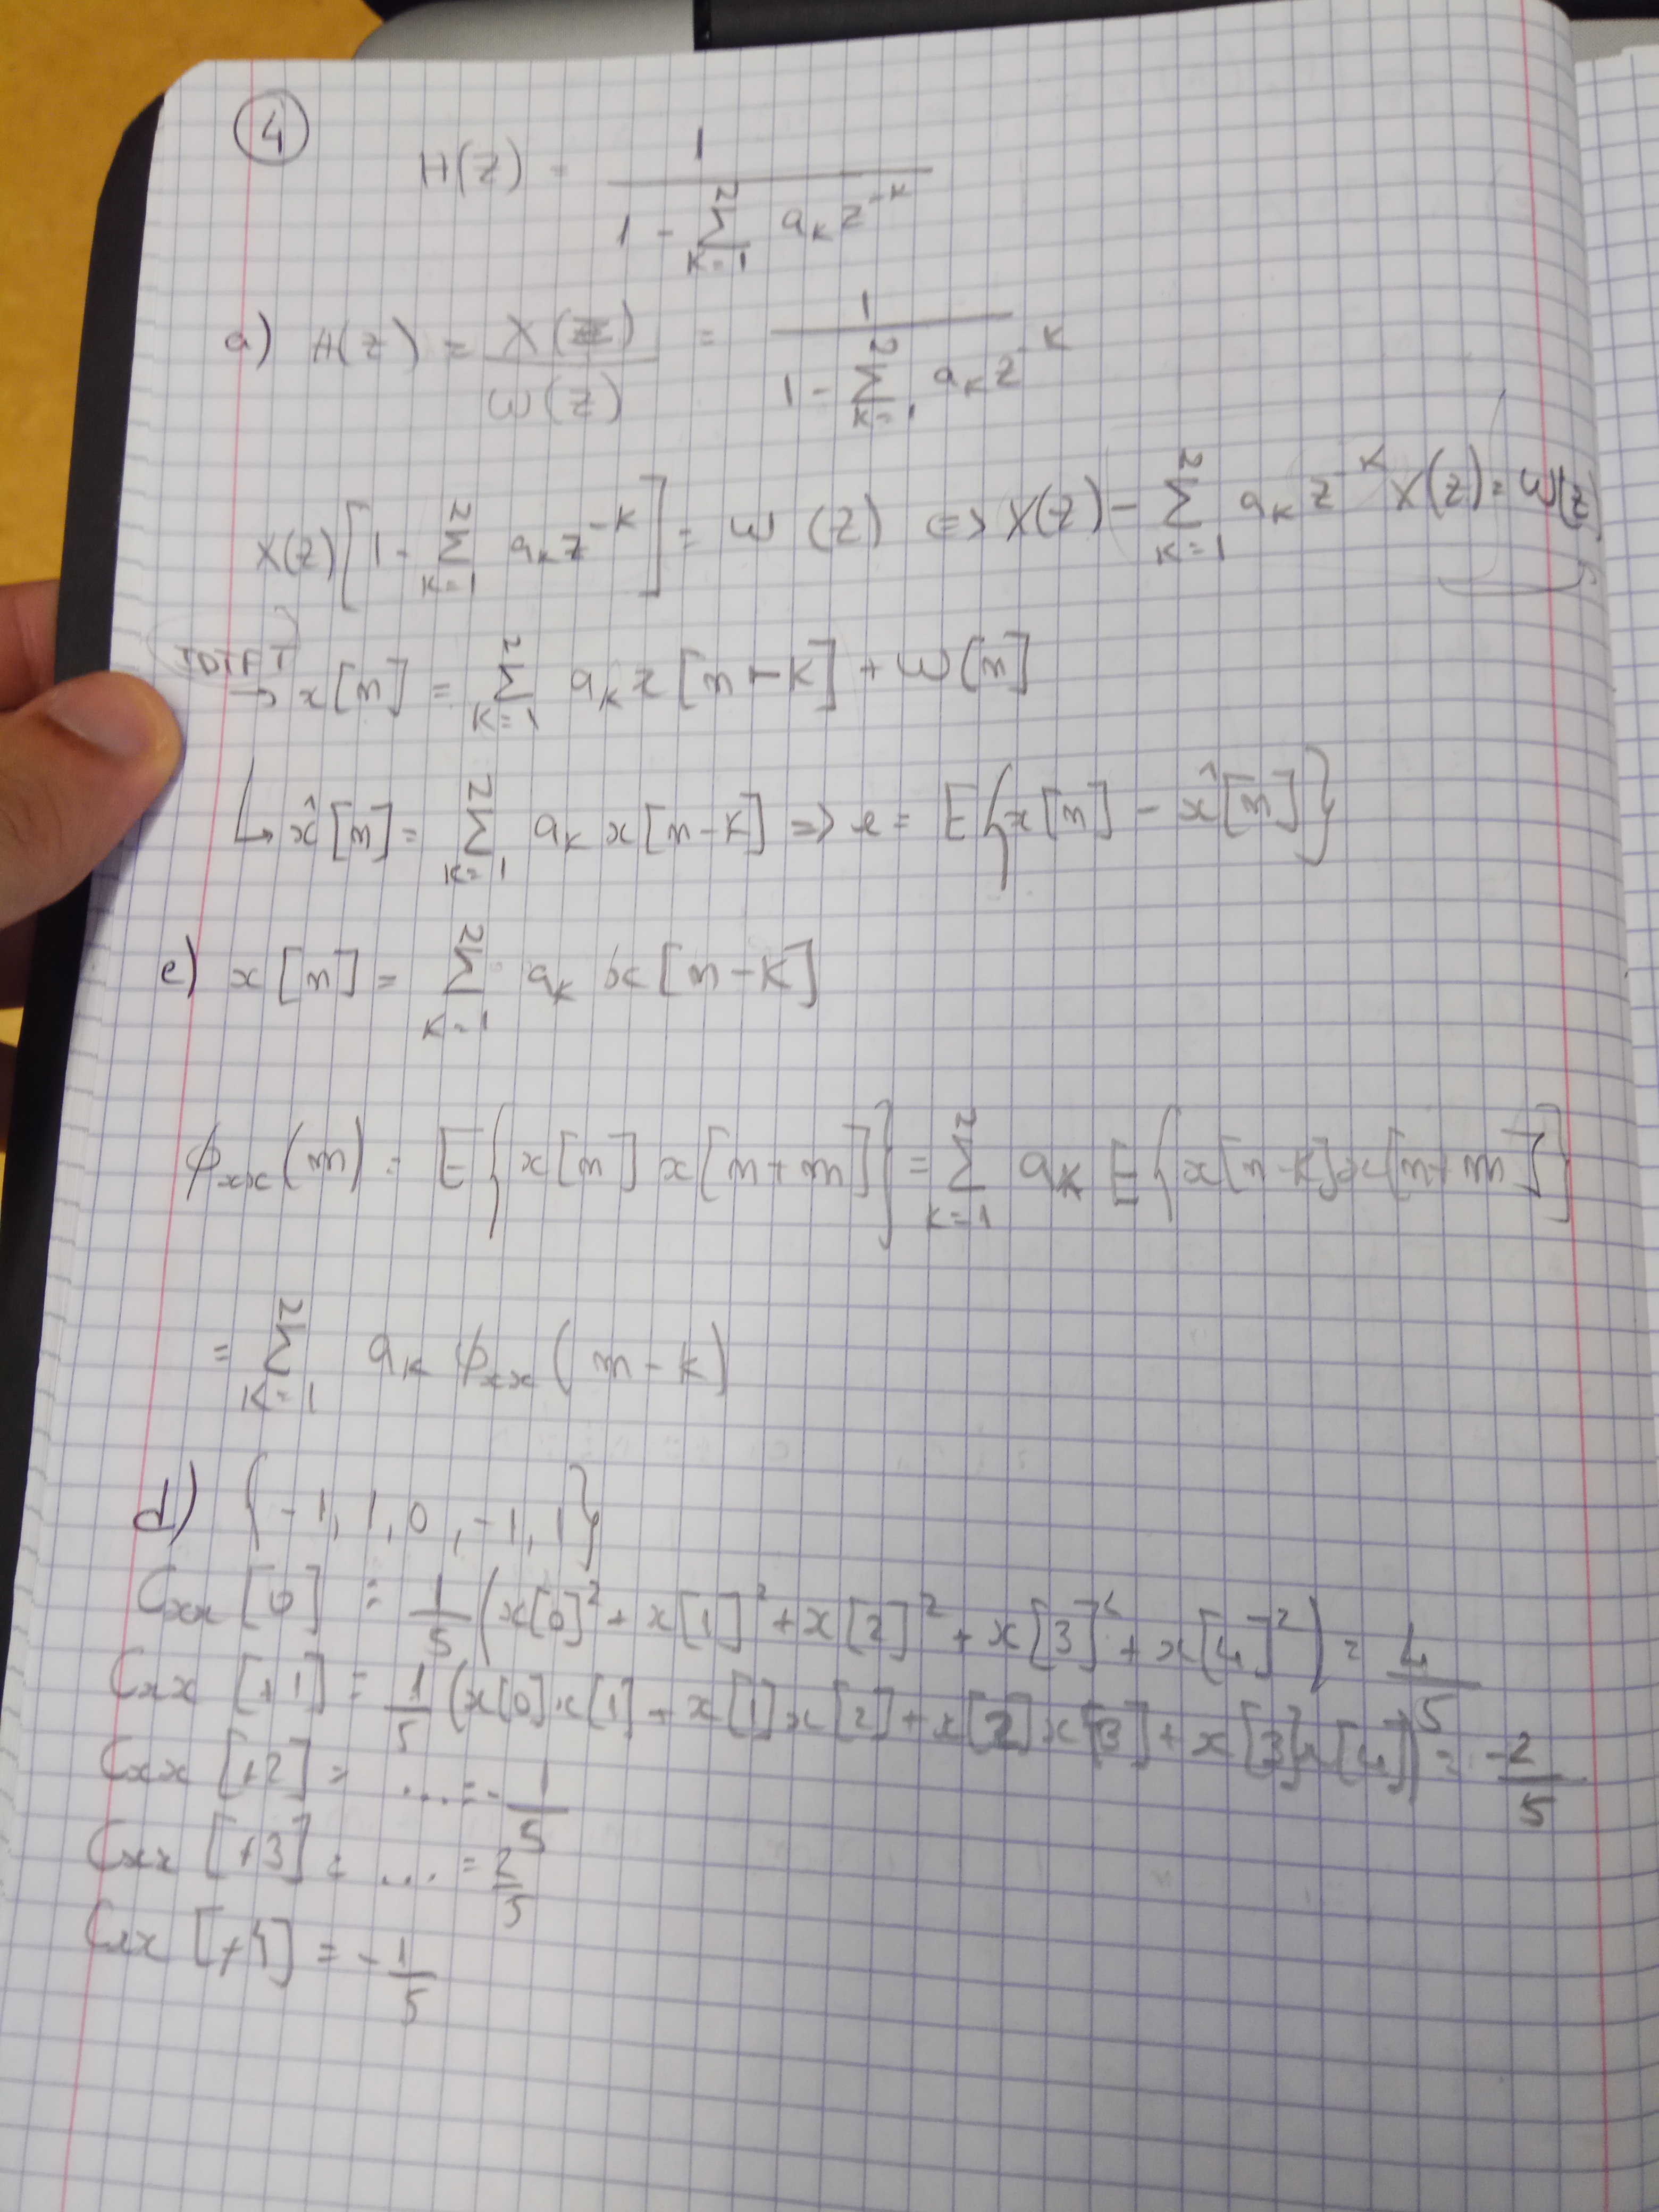 ④
H(z) = 1 / (1 - Σ_{k=1}^{2} a_k z^{-k})
a) H(z) = X(z) / W(z) = 1 / (1 - Σ_{k=1}^{2} a_k z^{-k})
X(z) [1 - Σ_{k=1}^{2} a_k z^{-k}] = W(z) <=> X(z) - Σ_{k=1}^{2} a_k z^{-k} X(z) = W(z)
IDTFT → x[n] = Σ_{k=1}^{2} a_k x[n-k] + w[n]
↳ x̂[n] = Σ_{k=1}^{2} a_k x[n-k] => e = E{x[n] - x̂[n]}
c) x[n] = Σ_{k=1}^{2} a_k x[n-k]
ϕ_xx(m) = E{x[n] x[n+m]} = Σ_{k=1}^{2} a_k E{x[n-k] x[n+m]}
= Σ_{k=1}^{2} a_k ϕ_xx(m-k)
d) {-1, 1, 0, -1, 1}
C_xx[0] = 1/5 (x[0]² + x[1]² + x[2]² + x[3]² + x[4]²) = 4/5
C_xx[+1] = 1/5 (x[0]x[1] + x[1]x[2] + x[2]x[3] + x[3]x[4]) = -2/5
C_xx[+2] = ... = -1/5
C_xx[+3] = ... = 2/5
C_xx[+4] = -1/5